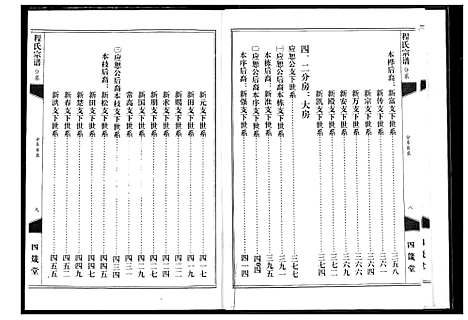 程氏宗谱
分卷
分卷目录
八
四箴堂
新富支下世系……三五八
新传支下世系……三六一
新宗支下世系……三六三
新万支下世系……三六六
新安支下世系……三六九
新殿支下世系……三七二
新凯支下世系……三七四
四、二分房：大房
应恕公支下世系……三七七
㈠应恕公后裔本栋支下世系……三九一
本栋后裔：新淮支下世系……三九五
㈡应恕公后裔本序支下世系……四〇四
本序后裔：新强支下世系……四一四
新元支下世系……四一七
新田支下世系
新赐支下世系……四二二
新求支下世系……四二四
新朋支下世系……四二七
新国支下世系……四二九
常高支下世系……四三一
㈢应恕公后裔本枝支下世系……四三四
本枝后裔：新松支下世系……四四一
新田支下世系
新楚支下世系……四四八
新春支下世系……四五二
新洪支下世系……四五五
程氏宗谱
分卷
分卷目录
九
四箴堂